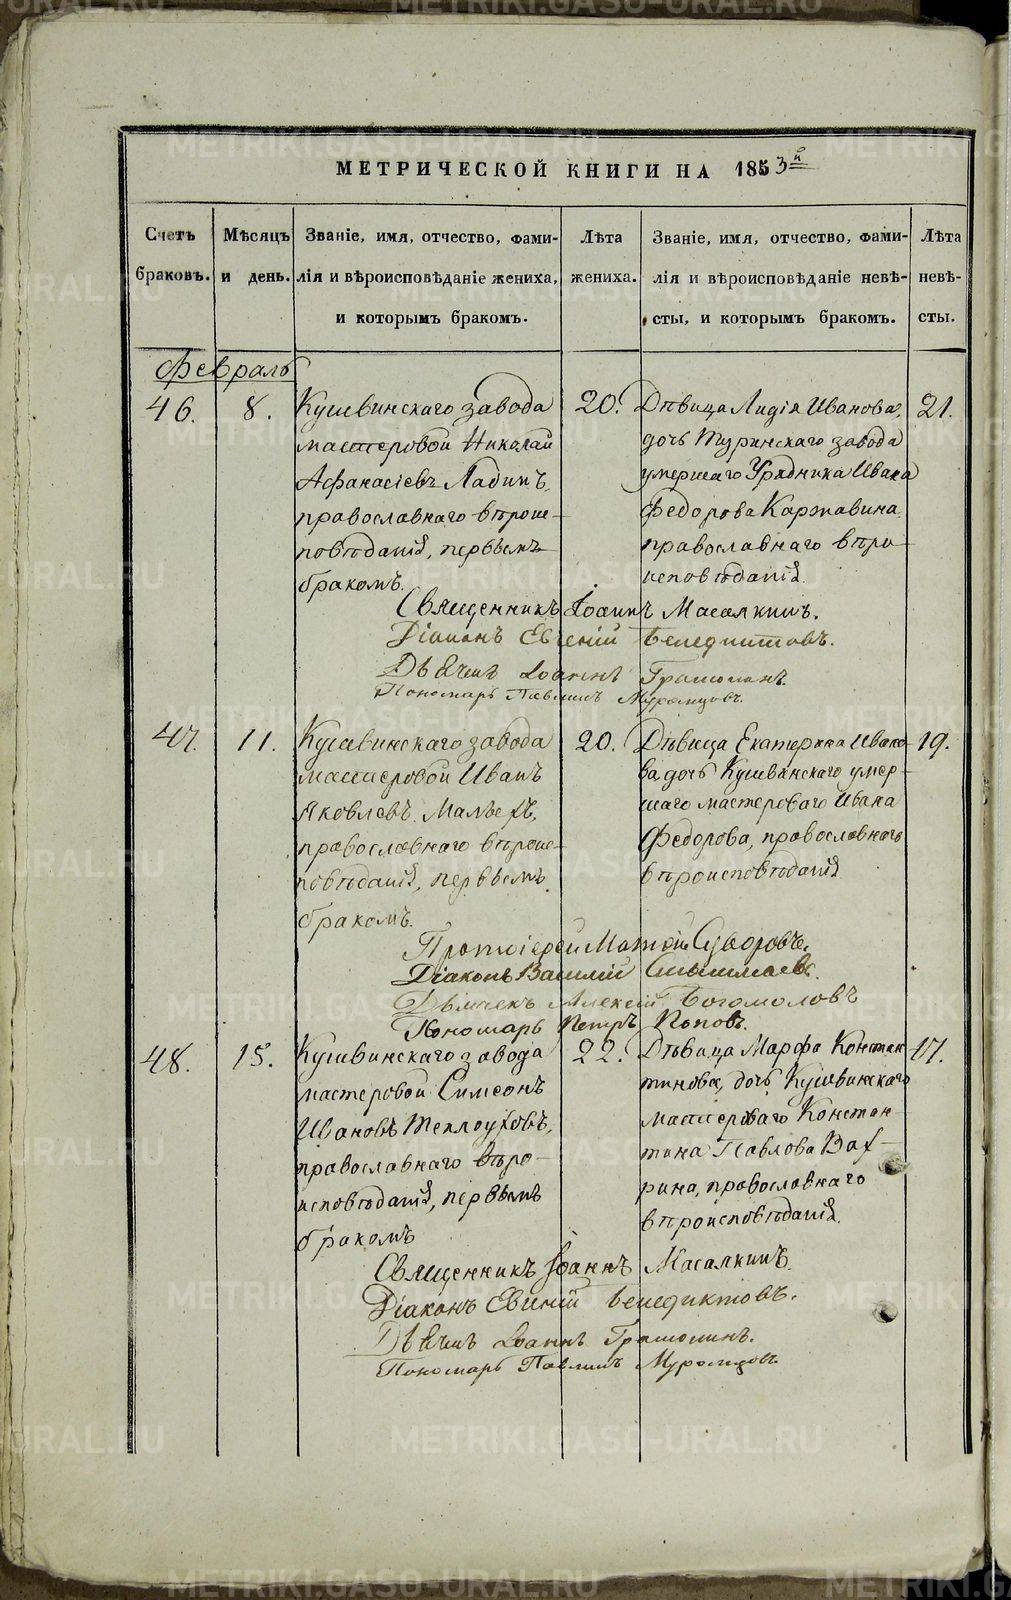 МЕТРИЧЕСКОЙ КНИГИ НА 1853й
Счетъ браковъ.
Мѣсяцъ и день.
Званіе, имя, отчество, фами-
лія и вѣроисповѣданіе жениха,
и которымъ бракомъ.
Лѣта жениха.
Званіе, имя, отчество, фами-
лія и вѣроисповѣданіе невѣ-
сты, и которымъ бракомъ.
Лѣта невѣ-
сты.
Февраль
46.
8.
Кушвинскаго завода
мастеровой Николай
Афанасіевъ Ладинъ,
православнаго вѣроис-
повѣданія, первымъ
бракомъ.
20.
Дѣвица Лидія Иванова,
дочь Туринскаго завода
умершаго Урядника Ивана
Федорова Каржавина
православнаго вѣро-
исповѣданія
21.
Священникъ Іоаннъ Масалкинъ.
Діаконъ Евгеній Бенедиктовъ.
Дьячекъ Іоаннъ
Пономарь Павлинъ Муромцовъ.
47.
11.
Кушвинскаго завода
мастеровой Иванъ
Яковлевъ
православнаго вѣроис-
повѣданія, первымъ
бракомъ.
20.
Дѣвица Екатерина Ивано-
ва дочь Кушвинскаго умер-
шаго мастероваго Ивана
Федорова, православнаго
вѣроисповѣданія
19.
Протоіерей Матѳій Суворовъ.
Діаконъ Василій
Дьячекъ Алексій Богомоловъ
Пономарь Петръ Поповъ.
48.
15.
Кушвинскаго завода
мастеровой Симеонъ
Ивановъ Теплоуховъ,
православнаго вѣро-
исповѣданія, первымъ
бракомъ
22.
Дѣвица Марфа Констан-
тинова, дочь Кушвинскаго
мастероваго Констан-
тина Павлова Вах-
рина, православнаго
вѣроисповѣданія.
17.
Священникъ Іоаннъ Масалкинъ.
Діаконъ Евгеній Бенедиктовъ.
Дьячекъ Іоаннъ
Пономарь Павлинъ Муромцовъ.
METRIKI.GASO-URAL.RU